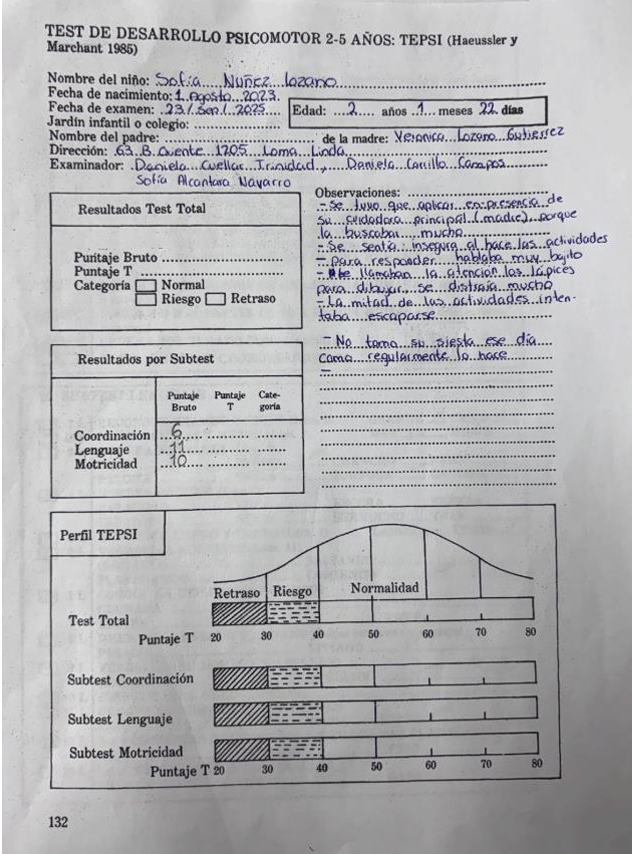 TEST DE DESARROLLO PSICOMOTOR 2-5 AÑOS: TEPSI (Haeussler y
Marchant 1985)
Nombre del niño: Sofía Nuñez Lozano
Fecha de nacimiento: 1 Agosto 2023.
Fecha de examen: 23/Sep/2025
Edad: 2 años 1 meses 22 días
Jardín infantil o colegio:
Nombre del padre: de la madre: Veronica Lozano Gutierrez
Dirección: 63 B. Oriente 1205 Loma Linda
Examinador: Daniela Cuellar Trinidad, Daniela Carillo Campos
Sofía Alcantara Navarro
Resultados Test Total
Puntaje Bruto
Puntaje T
Categoría Normal
Riesgo Retraso
Observaciones:
- Se tuvo que aplicar en presencia de
su cuidadora principal (madre) porque
la buscaba mucho
- Se sentía insegura al hace las actividades
- para responder hablaba muy bajito
- le llamaban la atención los lápices
para dibujar, se distraía mucho
- La mitad de las actividades inten-
taba escaparse
- No toma su siesta ese día
como regularmente lo hace
-
Resultados por Subtest
Puntaje Bruto Puntaje T Cate-goría
Coordinación 6
Lenguaje 11
Motricidad 10
Perfil TEPSI
Retraso Riesgo Normalidad
Test Total
Puntaje T 20 30 40 50 60 70 80
Subtest Coordinación
Subtest Lenguaje
Subtest Motricidad
Puntaje T 20 30 40 50 60 70 80
132